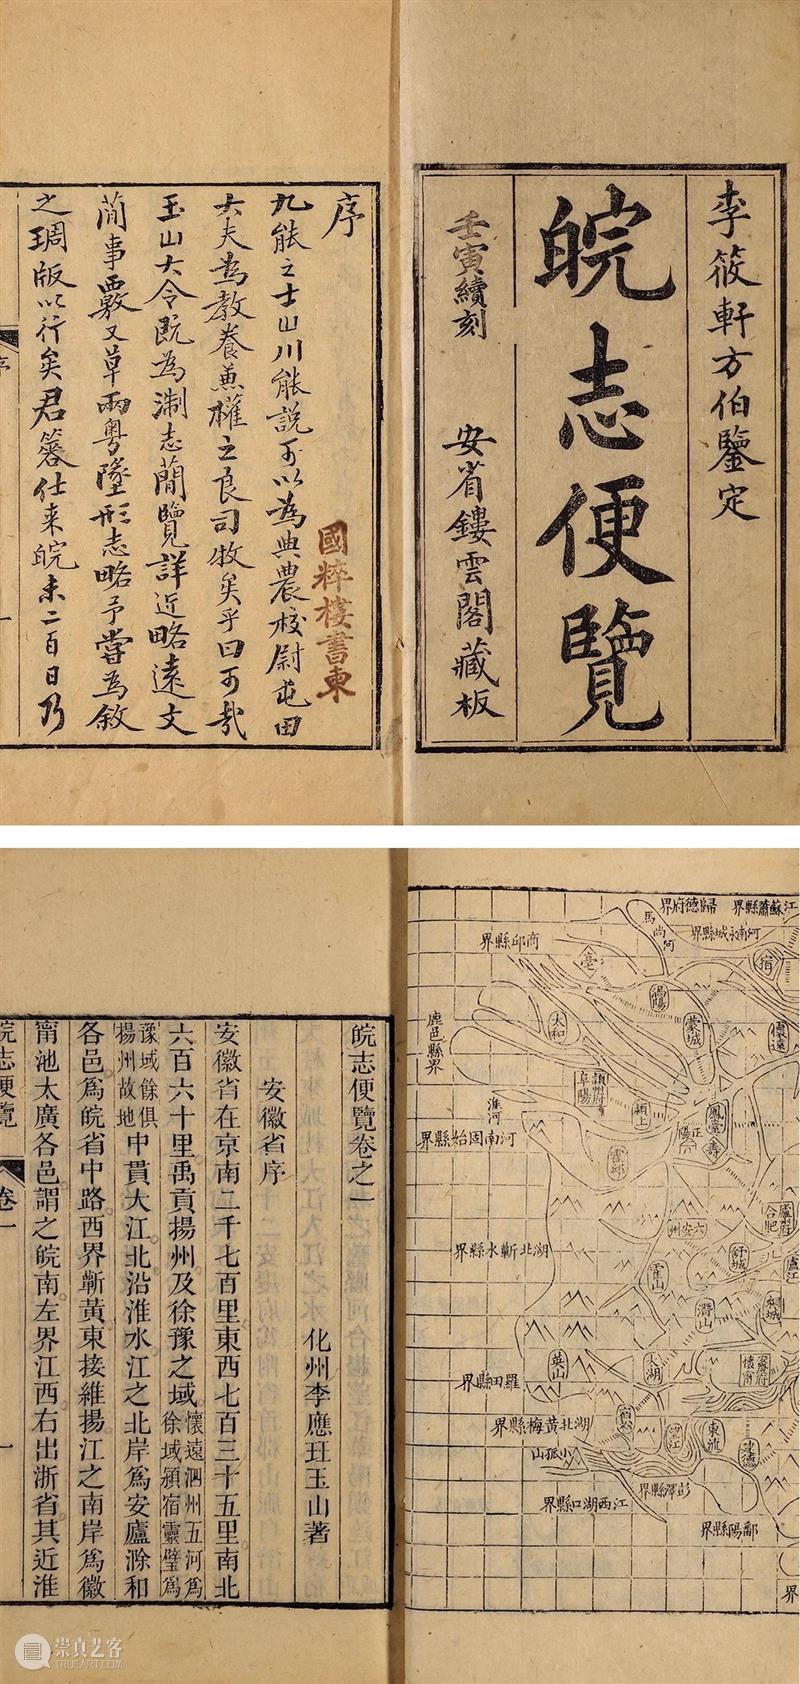 李筱軒方伯鑒定
皖志便覽
壬寅續刻
安省鏤雲閣藏板
序
九能之士山川能說可以為典農校尉屯田
大夫為教養兼權之良司牧矣乎曰可哉
玉山大令既為淛志簡覽詳近略遠文
簡事覈又草兩粵墬形志略予嘗為敘
之琱版以行矣君簭仕来皖未二百日乃
序
一
國粹樓書柬
江蘇蕭縣界
歸德府界
河南永城縣界
馬尚河
商邱縣界
鹿邑縣界
宿
亳
渦陽
蒙城
懷遠
太和
潁州府
阜陽
潁上
鳳臺
壽
正陽
淮河
河南固始縣界
霍邱
六安州
廬州府
合肥
湖北蘄水縣界
舒城
廬江
霍山
潛山
桐城
英山
太湖
安慶府
懷甯
羅田縣界
湖北黃梅縣界
宿松
望江
東流
建德
小孤山
彭澤縣界
江西湖口縣界
鄱陽縣界
界
皖志便覽卷之一
化州李應玨玉山著
安徽省序
安徽省在京南二千七百里東西七百三十五里南北
六百六十里禹貢揚州及徐豫之域懷遠泗州五河為徐域潁宿靈璧為
豫域餘俱揚州故地中貫大江北沿淮水江之北岸為安廬滁和
各邑為皖省中路西界蘄黃東接維揚江之南岸為徽
甯池太廣各邑謂之皖南左界江西右出浙省其近淮
皖志便覽
卷一
一
崇真艺客
TRUEART.COM